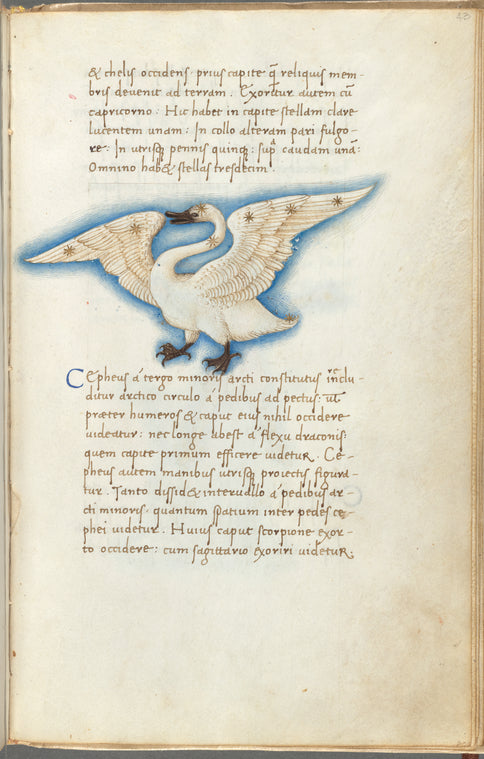 & chelis occidens prius capite q̄ reliquis mem-
bris devenit ad terram. Exoritur autem cū
capricorno: Hic habet in capite stellam clare
lucentem unam: In collo alteram pari fulgo-
re: In utrisq; pennis quinq;: supra caudam unā:
Omnino hab& stellas tresdecim.
CEpheus á tergo minoris arcti constitutus inclu-
ditur arctico circulo á pedibus ad pectus: ut
præter humeros & caput eius nihil occidere
uideatur: nec longe abest á flexu draconis:
quem capite primum efficere videtur. Ce-
pheus autem manibus utrisq; proiectis figura-
tur. Tanto dissid& intervallo á pedibus ar-
cti minoris: quantum spatium inter pedes ce-
phei videtur. Huius caput scorpione exor-
to occidere: cum sagittario exoriri uidetur;